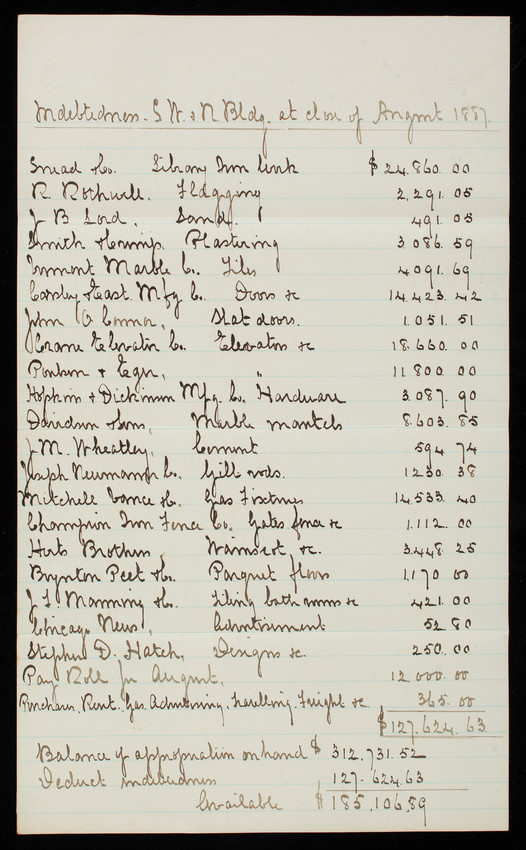 Indebtedness - S. W. & N Bldg. at close of August 1887.
Snead & Co. Library Iron work $24,860.00
R. Rothwell. Flagging 2,291.05
J B Lord, Sand. 491.05
Smith & Cummings. Plastering 3.086.59
Vermont Marble Co. Tiles 4091.69
Cassley & East. Mfg Co. Doors &c 14.423.42
John O'Connor, Slat doors. 1.051.51
Crane Elevator Co. Elevators &c 18.660.00
Poulson & Eger, " 11800.00
Hopkins & Dickinson Mfg. Co. Hardware 3.087.90
Davidson & Sons, Marble mantels 8.603.85
J M. Wheatley, Cement 594 74
Joseph Neumann Co. Gilt rods. 1230.38
Mitchell Vance & Co. Gas Fixtures 14.533.40
Champion Iron Fence Co. Gates fence &c 1.112.00
Herts Brothers, Wainscot, &c. 3.448.25
Boynton Peet & Co. Parquet floors 1.170 00
J. L. Manning & Co. Tiling bath rooms &c 421.00
Chicago News, Advertisement 52 80
Stephen D. Hatch, Designs &c. 250.00
Pay Roll for August, 12000.00
Purchases, Rent, Gas, Advertising, Travelling, Freight &c 365.00
$127.624.63
Balance of appropriation on hand $ 312.731.52
Deduct indebtedness 127.624.63
Available $185.106.89